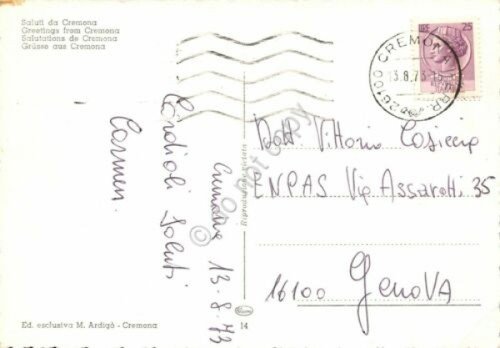 Saluti da Cremona
Greetings from Cremona
Salutations de Cremona
Grüsse aus Cremona
25
26100 CREMONA
13.8.73
Cremona 13-8-73
Cordiali saluti
Carmen
Dott. Vittorio Casiccio
ENPAS Via Assarotti 35
16100 GENOVA
Riproduzione vietata
Ed. esclusiva M. Ardigò - Cremona
14
do not copy